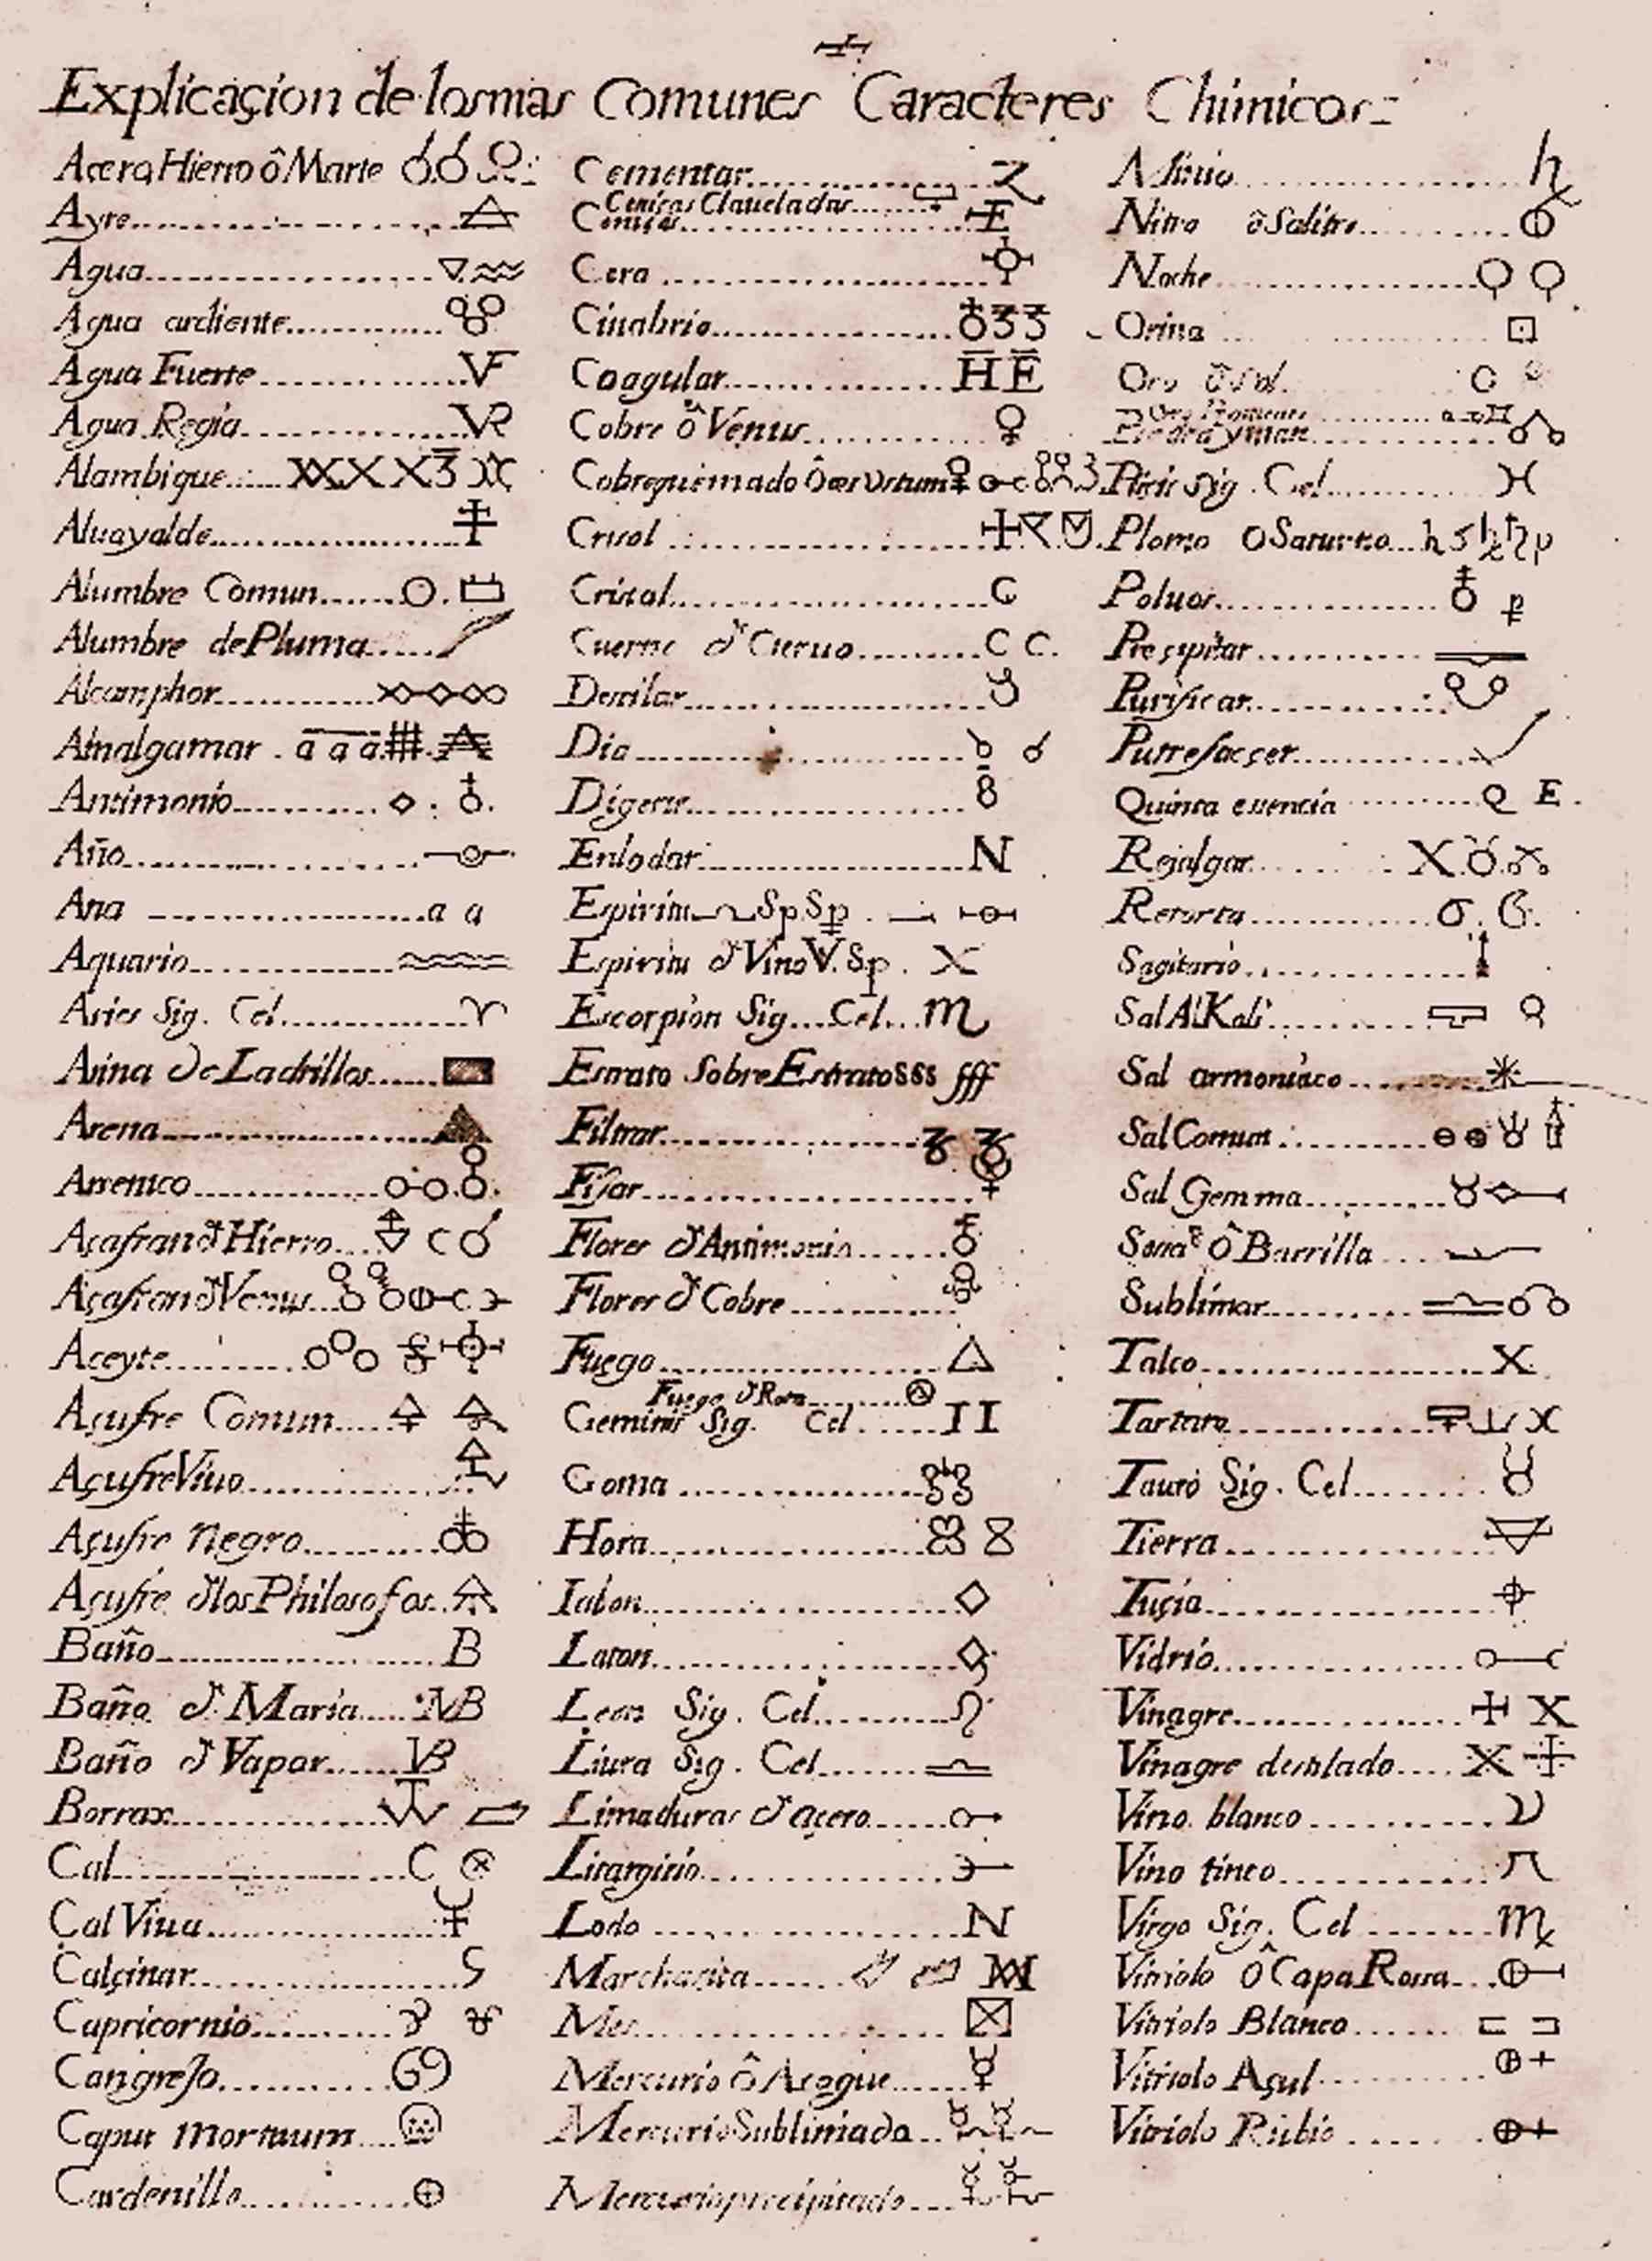 Explicaçion de los mas Comunes Caracteres Chimicos
Acero Hierro ô Marte
Ayre
Agua
Agua ardiente
Agua Fuerte VF
Agua Regia VR
Alambique
Aluayalde
Alumbre Comun
Alumbre de Pluma
Alcamphor
Amalgamar a a a
Antimonio
Año
Ana a a
Aquario
Aries Sig. Cel.
Arina de Ladrillos
Arena
Arsenico
Açafran d Hierro
Açafran d Venus
Aceyte
Açufre Comun
Açufre Viuo
Açufre Negro
Açufre dlos Philosofos
Baño B
Baño d Maria MB
Baño d Vapor VB
Borrax
Cal C
Cal Viua
Calçinar
Capricornio
Cangrejo
Caput mortuum
Cardenillo
Cementar
Cenisas Claueladas
Cenisas E
Cera
Cinabrio
Coagular H E
Cobre ô Venus
Cobre quemado Ô æs Ustum
Crisol
Cristal
Cuerno d Cieruo C C.
Destilar
Dia
Digerir
Enlodar N
Espiritu Sp Sp
Espiritu d Vino V. Sp.
Escorpion Sig. Cel.
Estrato Sobre Estrato SSS fff
Filtrar
Fijar
Flores d Antimonio
Flores d Cobre
Fuego
Fuego d Rota
Geminis Sig. Cel. II
Goma
Hora
Iabon
Laton
Leon Sig. Cel.
Liura Sig. Cel.
Limaduras d açero
Litargirio
Lodo N
Marchasita
Mes
Mercurio Ô Açogue
Mercurio Sublimado
Mercurio precipitado
Minio
Nitro ô Salitre
Noche
Orina
Oro ô Sol
Oro
Piedra yman
Picis Sig. Cel.
Plomo O Saturno
Poluos
Presipitar
Purificar
Putrefacçer
Quinta esencia Q E.
Rejalgar
Retorta
Sagitario
Sal AlKali
Sal armoniaco
Sal Comun
Sal Gemma
Ô Barrilla
Sublimar
Talco X
Tartaro
Tauro Sig. Cel.
Tierra
Tuçia
Vidrio
Vinagre
Vinagre destilado
Vino blanco
Vino tinto
Virgo Sig. Cel
Vitriolo Ô Capa Rosa
Vitriolo Blanco
Vitriolo Açul
Vitriolo Rubio